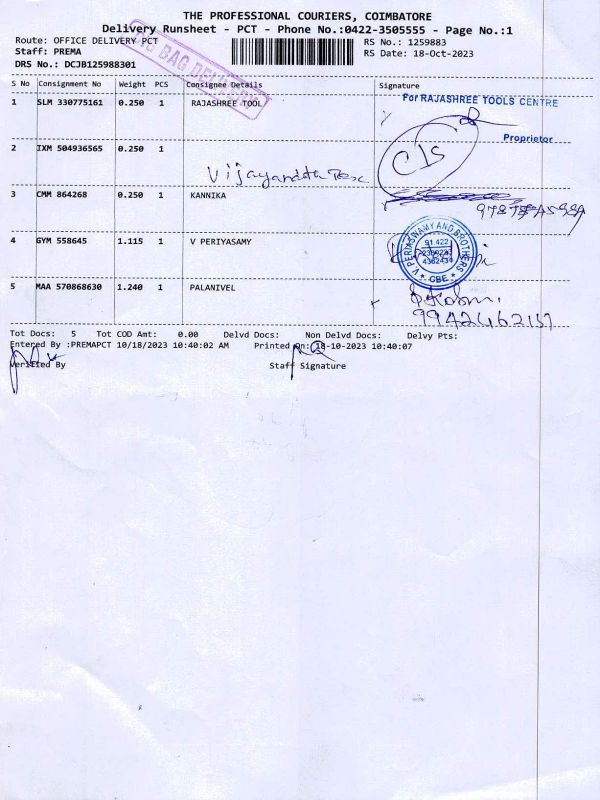 THE PROFESSIONAL COURIERS, COIMBATORE
Delivery Runsheet - PCT - Phone No.:0422-3505555 - Page No.:1
Route: OFFICE DELIVERY PCT
RS No.: 1259883
Staff: PREMA
RS Date: 18-Oct-2023
DRS No.: DCJB125988301
BAG DELIVERY
S No Consignment No Weight PCS Consignee Details Signature
1 SLM 330775161 0.250 1 RAJASHREE TOOL
For RAJASHREE TOOLS CENTRE
Proprietor
2 IXM 504936565 0.250 1
3 CMM 864268 0.250 1 KANNIKA
4 GYM 558645 1.115 1 V PERIYASAMY
V. PERIASWAMY AND BROTHERS
CBE
5 MAA 570868630 1.240 1 PALANIVEL
9942462157
Tot Docs: 5 Tot COD Amt: 0.00 Delvd Docs: Non Delvd Docs: Delvy Pts:
Entered By :PREMAPCT 10/18/2023 10:40:02 AM Printed On: 18-10-2023 10:40:07
Verified By Staff Signature